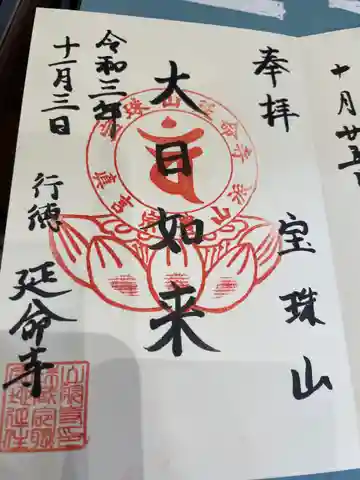 奉拝
宝珠山
大日如来
令和三年
十一月三日
行徳
延命寺